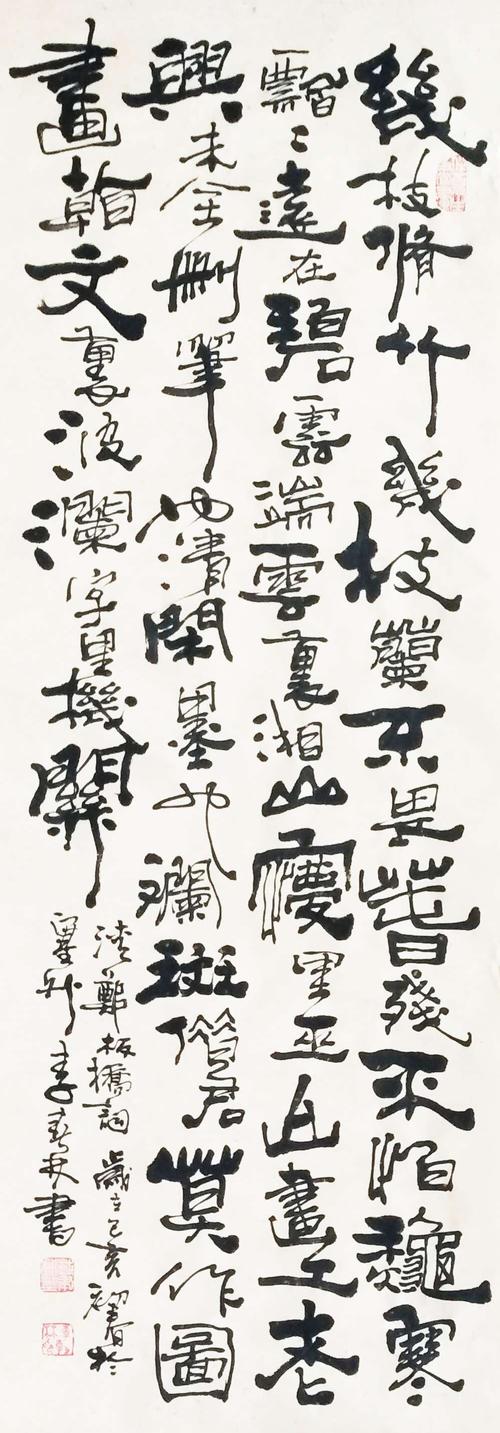 幾枝脩竹幾枝蘭不畏萅殘不怕龝寒
飄〻遠在碧雲端雲裏湘山夢里巫山畫工老
興未全刪筆也清閑墨也斕斑借君莫作圖
畫看文裏波瀾字里機關
清鄭板橋詞 歲在己亥初春於
墨 李春林書